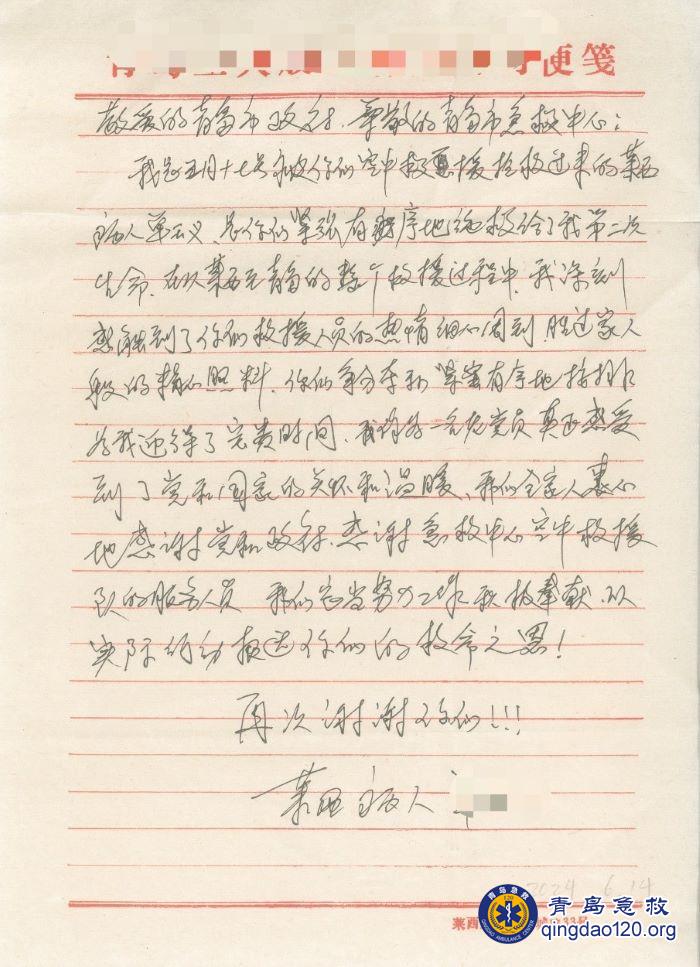 便笺
敬爱的青岛市政府、尊敬的青岛市急救中心：
我是五月十七号被你们空中救援抢救过来的莱西
病人单云义、是你们紧张有程序地抢救给了我第二次
生命，在从莱西至青岛的整个救援过程中，我深刻
感触到了你们救援人员的热情细心周到，胜过家人
般的精心照料，你们争分夺秒 紧密有序地
为我迎得了宝贵时间，我作为一名老党员真正感受
到了党和国家的关怀和温暖、我们全家人衷心
地感谢党和政府、感谢急救中心空中救援
队的服务人员 我们应当努力工作积极奉献，以
实际行动报达你们的救命之恩！
再次谢谢你们!!!
莱西病人
2024 6.14
莱西 33号
青岛急救
QINGDAO AMBULANCE CENTER
青岛急救
qingdao120.org